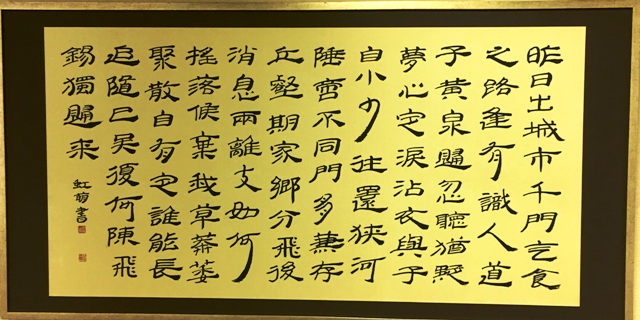 昨日出城市千門乞食
之路逢有識人道
子黃泉歸忽聽猶
夢心定淚沾衣與子
自小少往還狹河
陲啻不同門多兼存
丘壑期家鄉分飛後
消息兩離支如何
搖落候棄我草
聚散自有定誰能長
追隨已矣復何陳飛
錫獨歸來
書